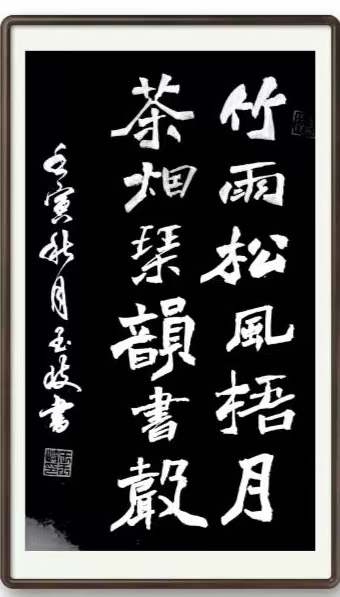 竹雨松風梧月
茶烟琹韻書聲
壬寅秋月玉書